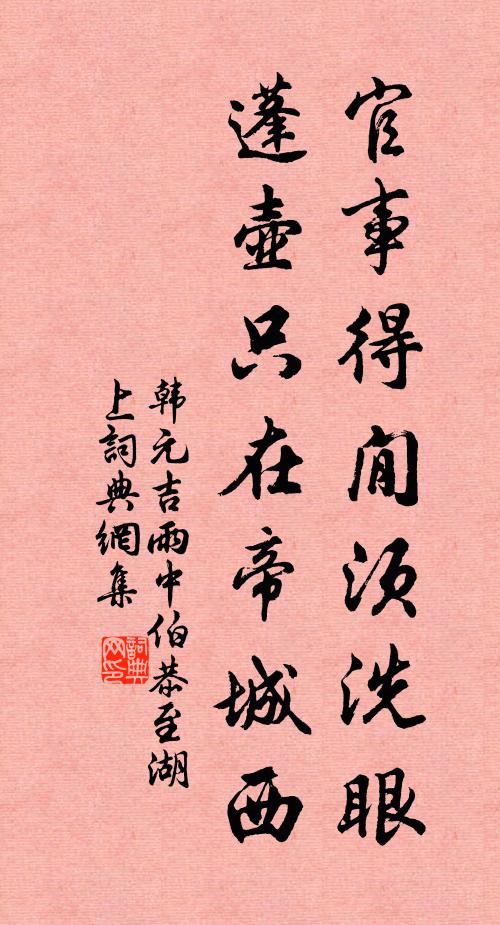 官事得閒須洗眼
蓬壺只在帝城西
韩元吉雨中伯恭至湖
上詞典網集
詞典网印